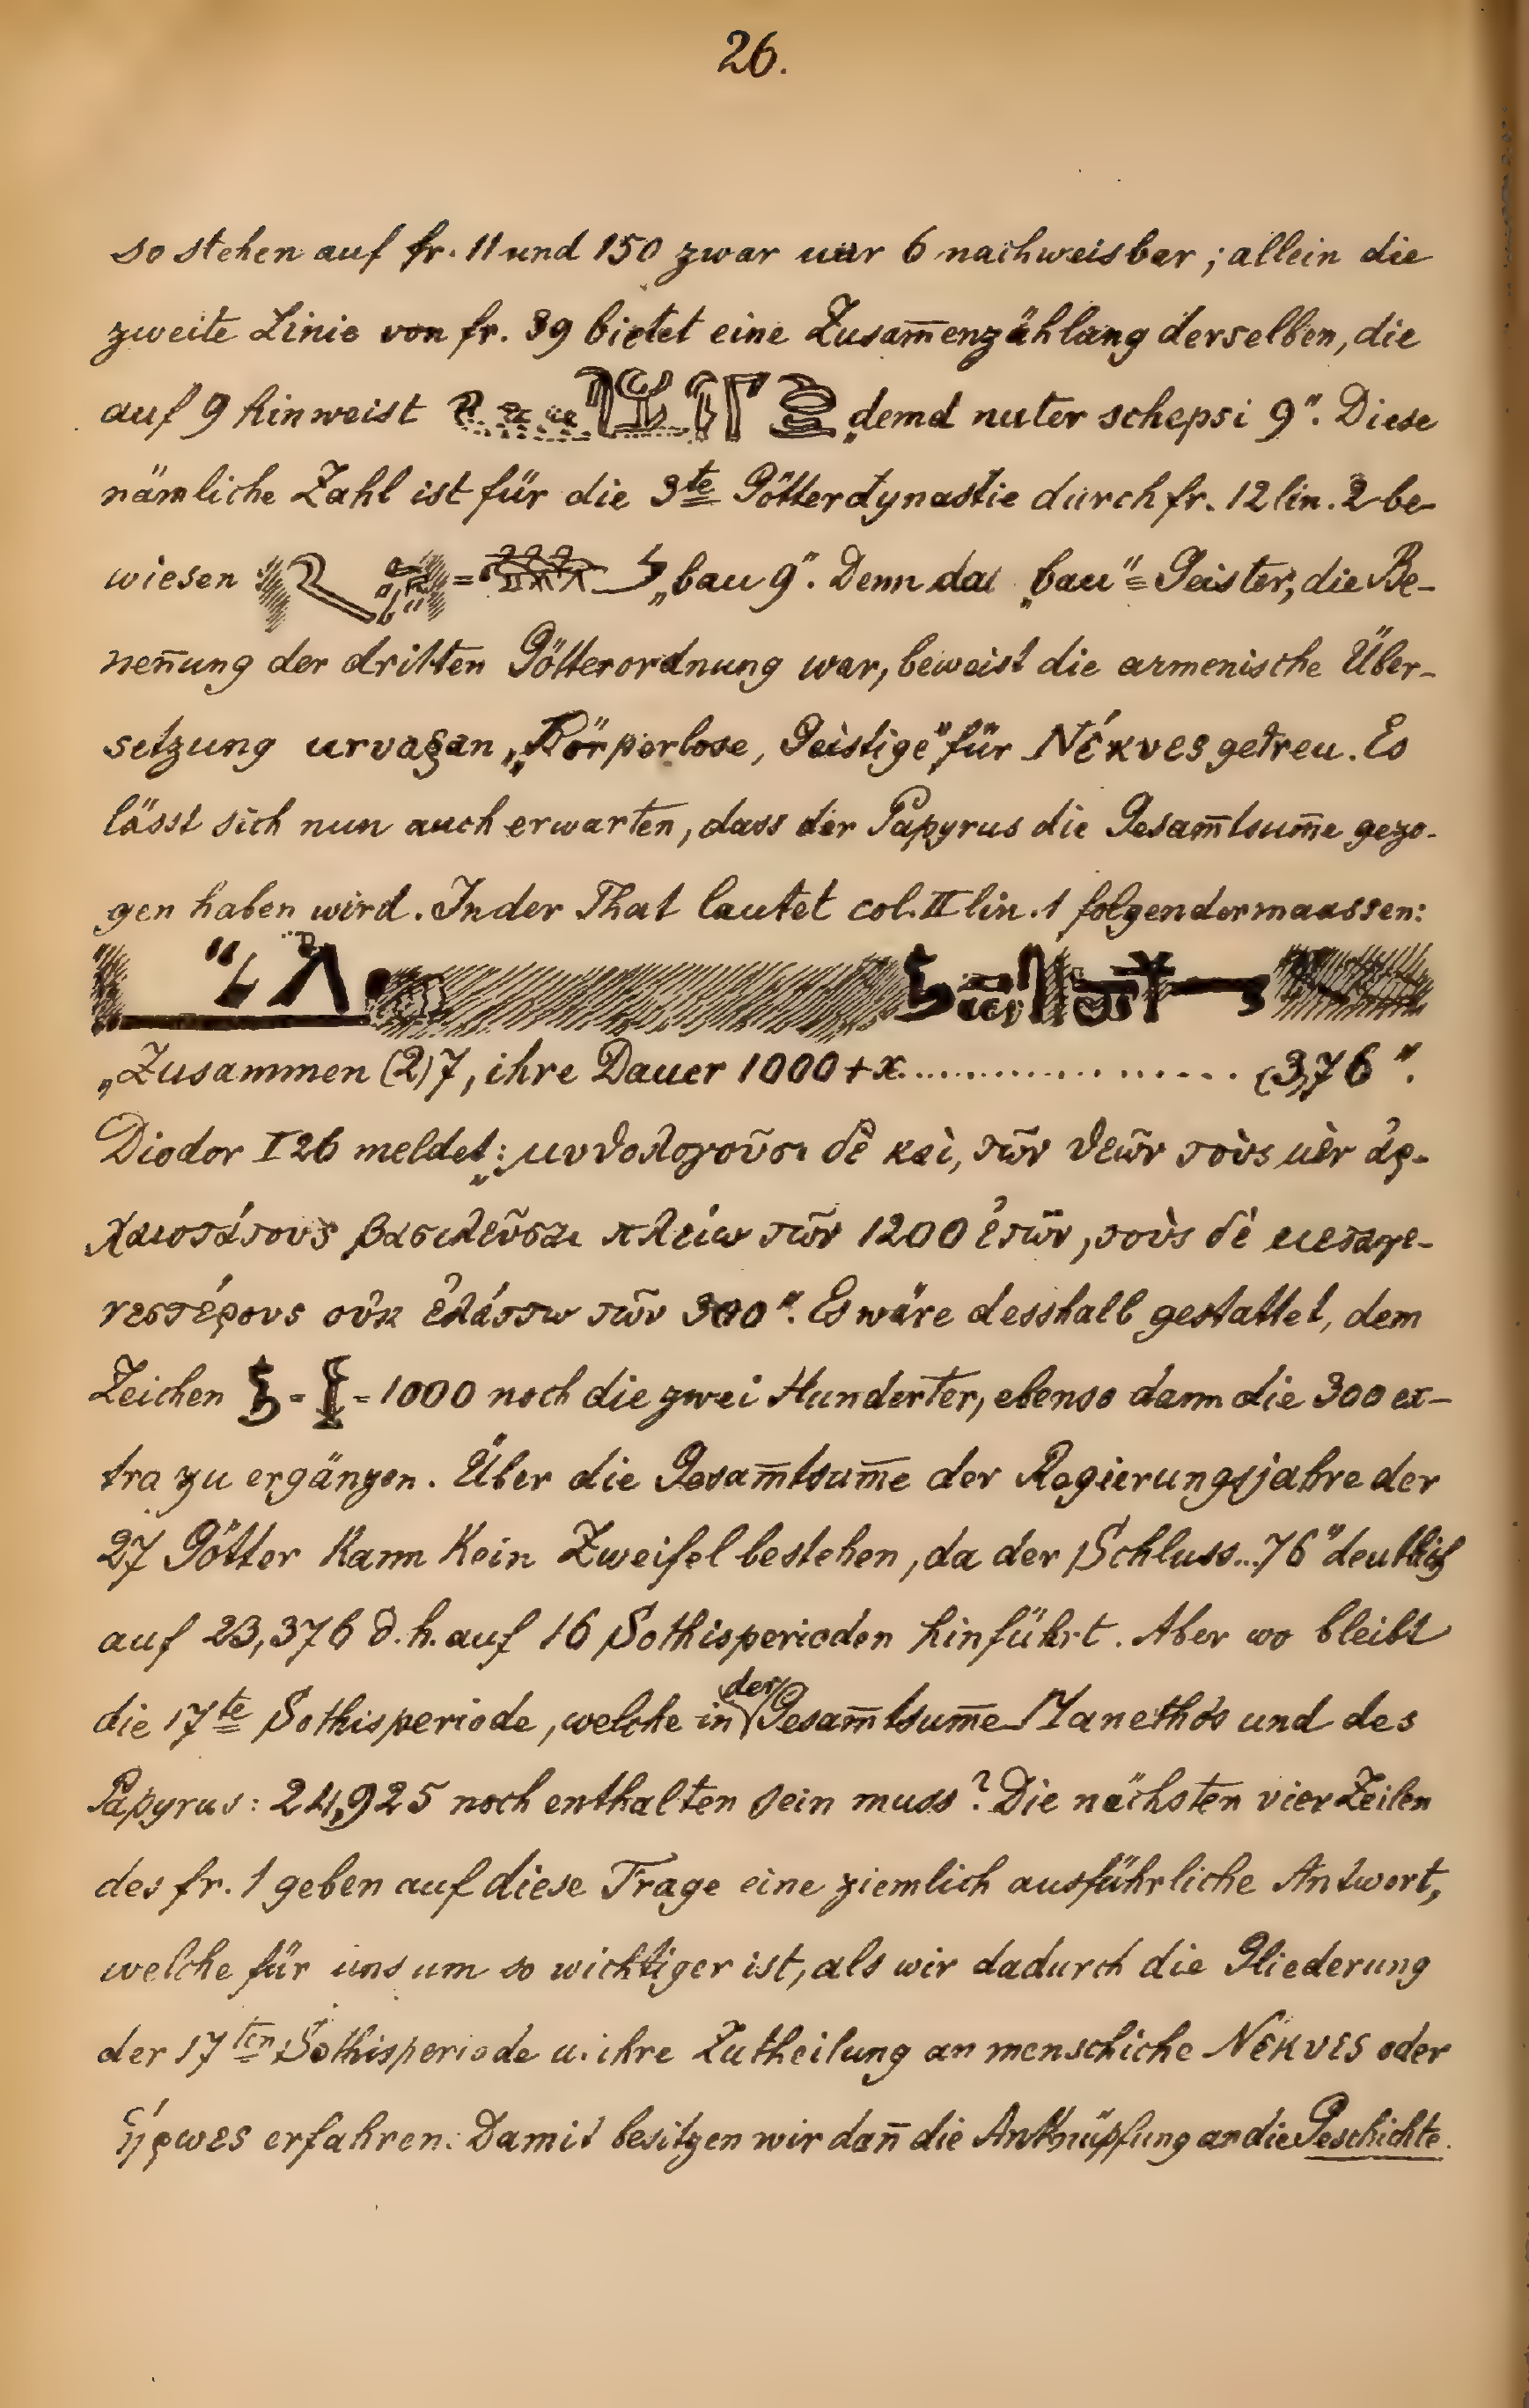 26.
so stehen auf fr. 11 und 150 zwar nur 6 nachweisbar; allein die
zweite Linie von fr. 39 bietet eine Zusam̄enzählung derselben, die
auf 9 hinweist „demd nuter schepsi 9". Diese
nämliche Zahl ist für die 3te Götterdynastie durch fr. 12 lin. 2 be-
wiesen = „bau 9". Denn das „bau" = Geister, die Be-
nen̄ung der dritten Götterordnung war, beweist die armenische Über-
setzung „Körperlose, Geistige" für Νέκυες getreu. Es
lässt sich nun auch erwarten, dass der Papyrus die Gesam̄tsum̄e gezo-
gen haben wird. In der That lautet col. II lin. 1 folgendermaassen:
„Zusammen (2)7, ihre Dauer 1000 + x................... (3)76".
Diodor I 26 meldet: „μυθολογοῦσι δὲ καὶ, τῶν θεῶν τοὺς μὲν ἀρ-
χαιοτάτους βασιλεῦσαι πλείω τῶν 1200 ἐτῶν, τοὺς δὲ μεταγε-
νεστέρους οὐκ ἐλάττω τῶν 300". Es wäre desshalb gestattet, dem
Zeichen = 1000 noch die zwei Hunderter, ebenso dann die 300 ex-
tra zu ergänzen. Über die Gesam̄tsum̄e der Regierungsjahre der
27 Götter kann kein Zweifel bestehen, da der Schluss „..76" deutlich
auf 23,376 d. h. auf 16 Sothisperioden hinführt. Aber wo bleibt
die 17te Sothisperiode, welche in der Gesam̄tsum̄e Manethós und des
Papyrus: 24,925 noch enthalten sein muss? Die nächsten vier Zeilen
des fr. 1 geben auf diese Frage eine ziemlich ausführliche Antwort,
welche für uns um so wichtiger ist, als wir dadurch die Gliederung
der 17ten Sothisperiode u. ihre Zutheilung an menschiche Νέκυες oder
ἥρωες erfahren. Damit besitzen wir dan̄ die Anknüpfung an die Geschichte.